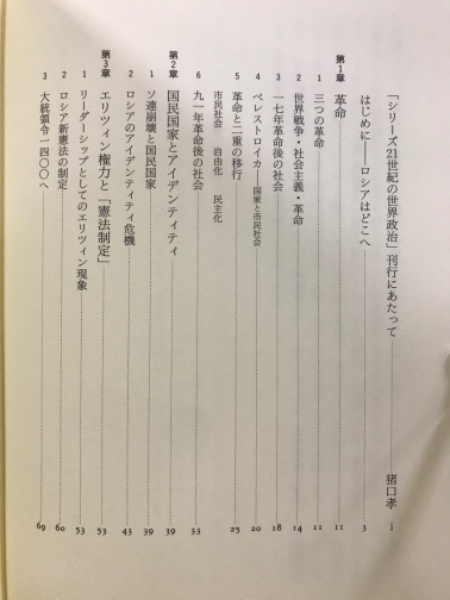 「シリーズ21世紀の世界政治」刊行にあたって 猪口孝 i
はじめに――ロシアはどこへ 3
第1章 革命 11
1 三つの革命 11
2 世界戦争・社会主義・革命 14
3 一七年革命後の社会 18
4 ペレストロイカ――国家と市民社会 20
5 革命と二重の移行 25
市民社会 自由化 民主化
6 九一年革命後の社会 33
第2章 国民国家とアイデンティティ 39
1 ソ連崩壊と国民国家 39
2 ロシアのアイデンティティ危機 43
第3章 エリツィン権力と「憲法制定」 53
1 リーダーシップとしてのエリツィン現象 53
2 ロシア新憲法の制定 60
3 大統領令一四〇〇へ 69